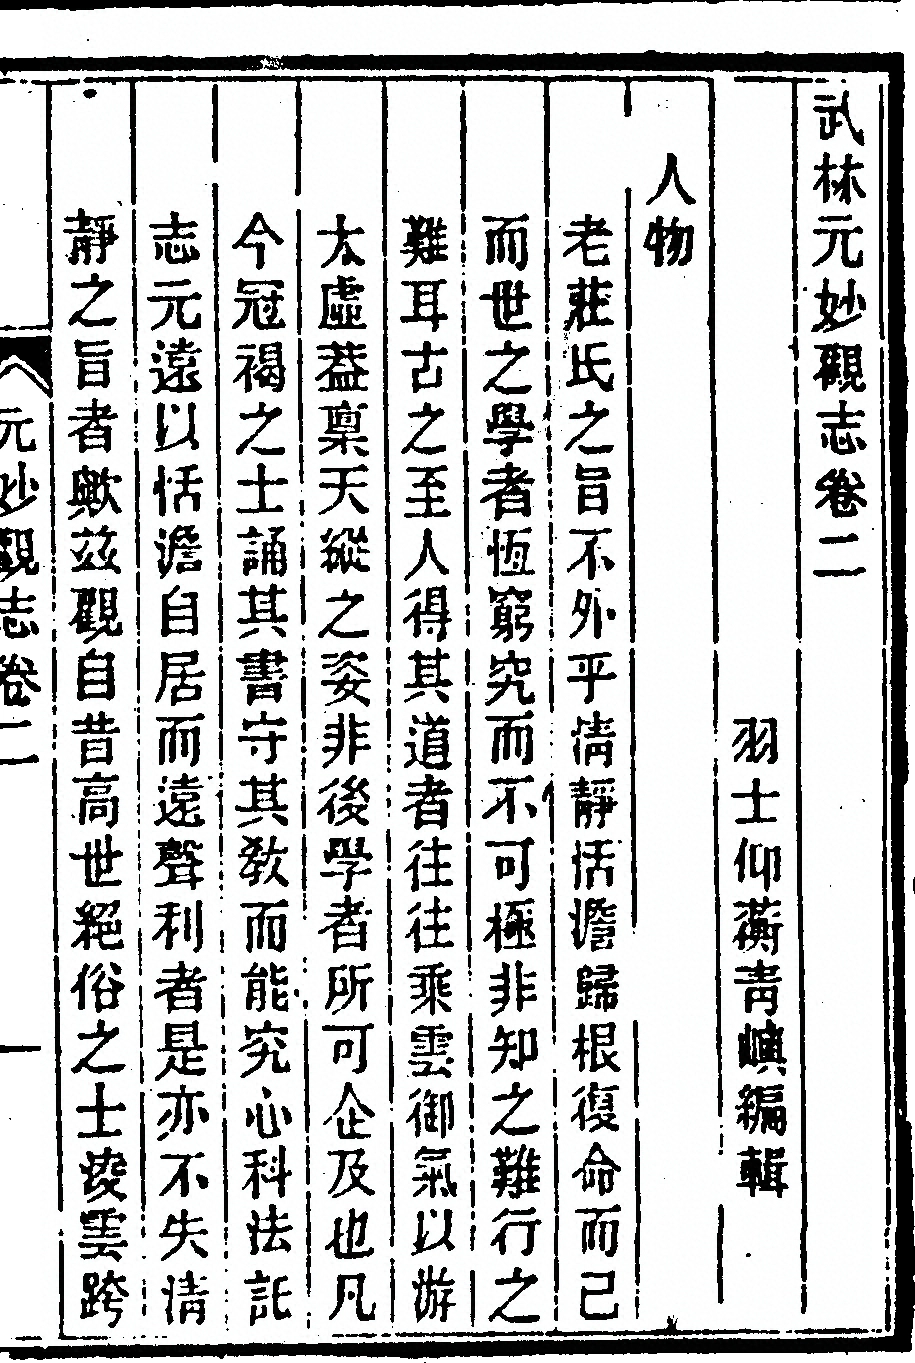 武林元妙觀志卷二
羽士仰蘅青嶼編輯
人物
老莊氏之旨不外乎清靜恬澹歸根復命而已
而世之學者恆窮究而不可極非知之難行之
難耳古之至人得其道者往往乘雲御氣以游
太虛葢稟天縱之姿非後學者所可企及也凡
今冠褐之士誦其書守其教而能究心科法託
志元遠以恬澹自居而遠聲利者是亦不失清
靜之旨者歟茲觀自昔高世絕俗之士淩雲跨
元妙觀志卷二
一